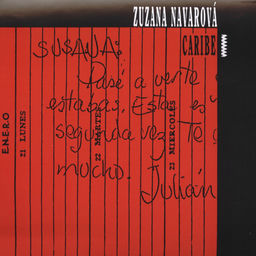 ZUZANA NAVAROVÁ
CARIBE
SUSANA:
Pasé a verte
estabas. Esta es
segunda vez. Te
mucho. Julián
E.N.E.R.O
21 LUNES
22 MARTES
23 MIERCOLES